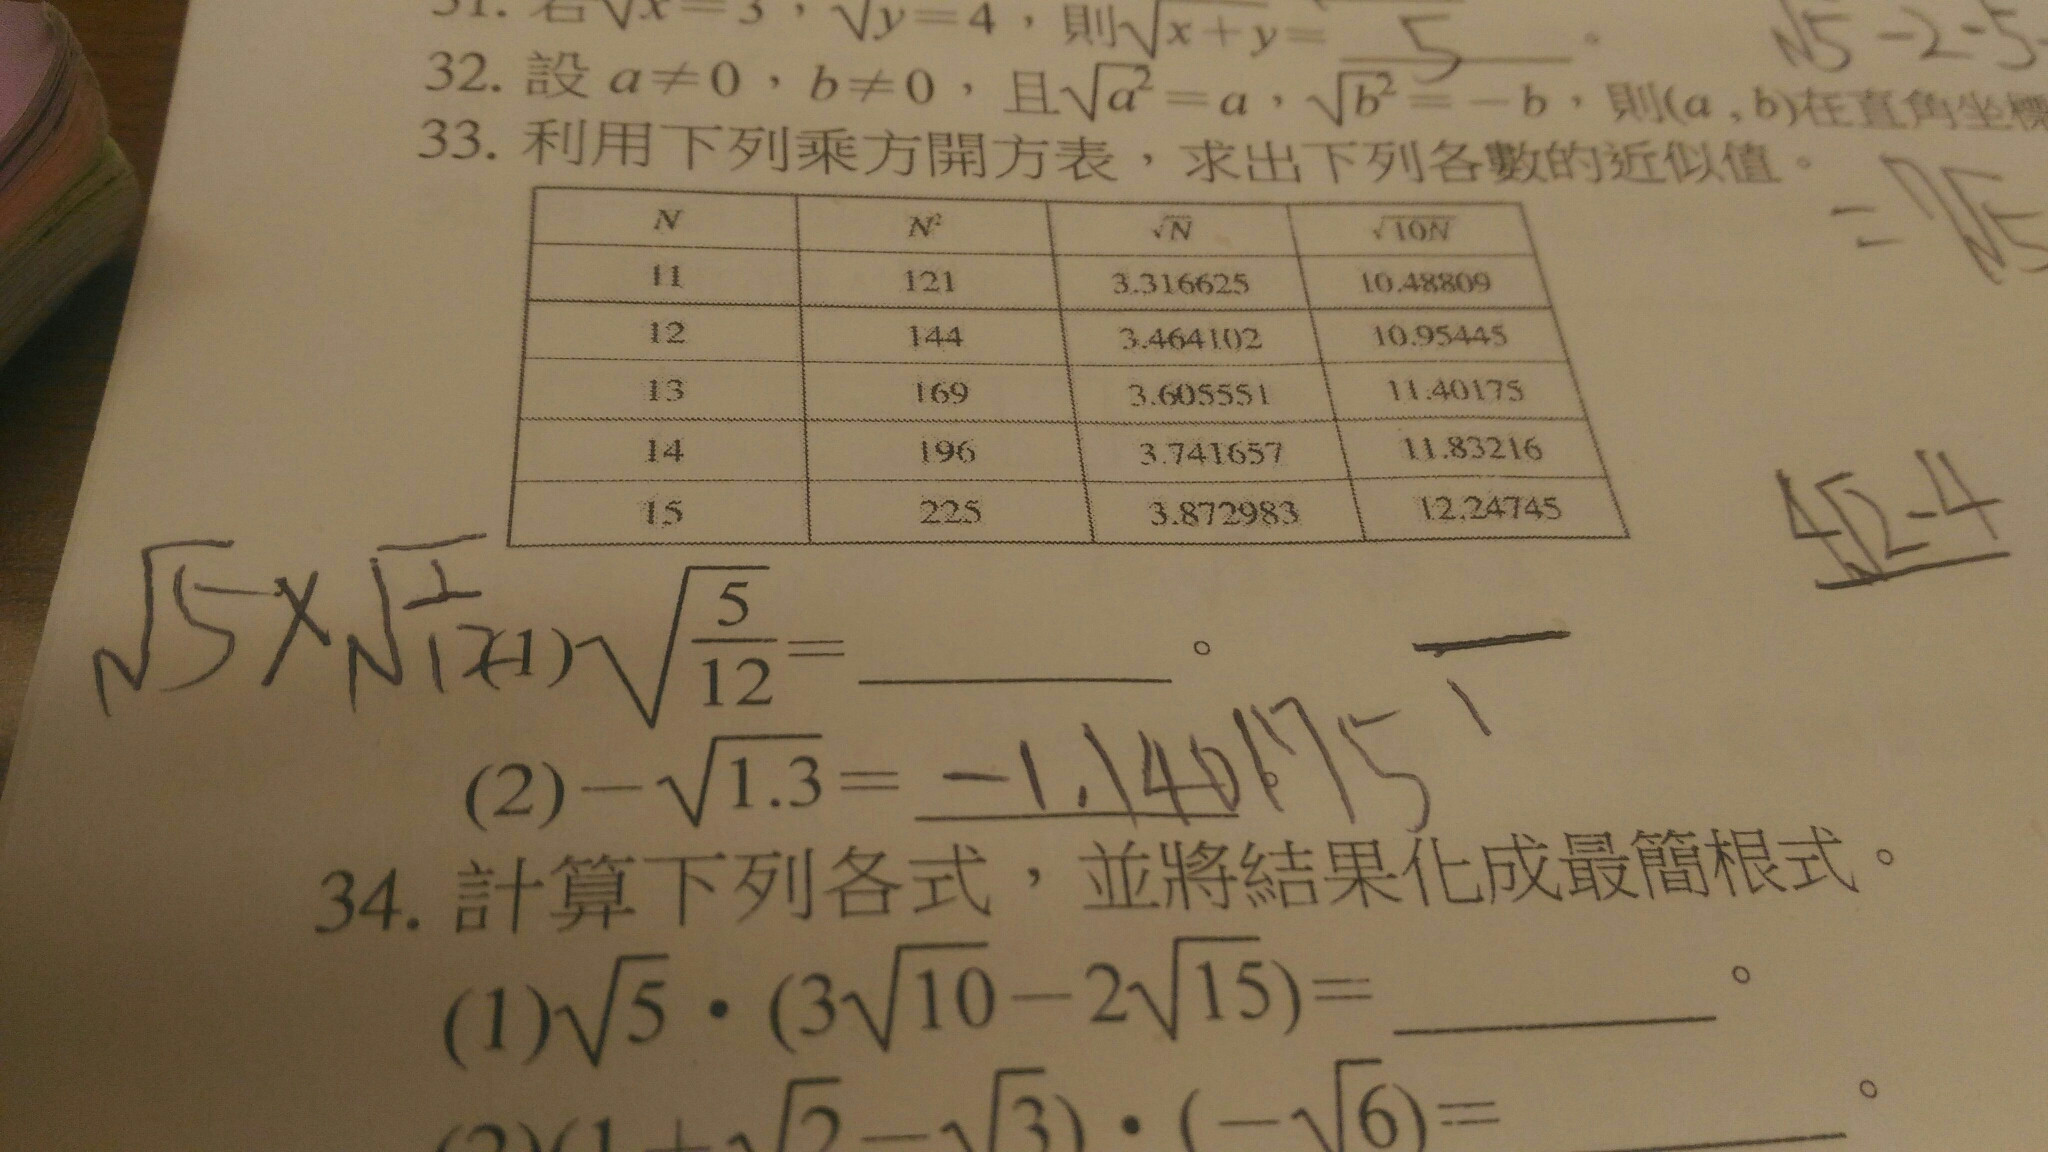 31. 若√x=3，√y=4，則√x+y= 5 。
√5-2-5
32. 設 a≠0，b≠0，且√a²=a，√b²=-b，則(a , b)在直角坐標
33. 利用下列乘方開方表，求出下列各數的近似值。
N N² √N √10N
11 121 3.316625 10.48809
12 144 3.464102 10.95445
13 169 3.605551 11.40175
14 196 3.741657 11.83216
15 225 3.872983 12.24745
4√2-4
√5×√1/12
(1)√5/12= 。
(2)-√1.3= -1.140175 。
34. 計算下列各式，並將結果化成最簡根式。
(1)√5•(3√10-2√15)= 。
(2)(1+√2-√3)•(-√6)= 。